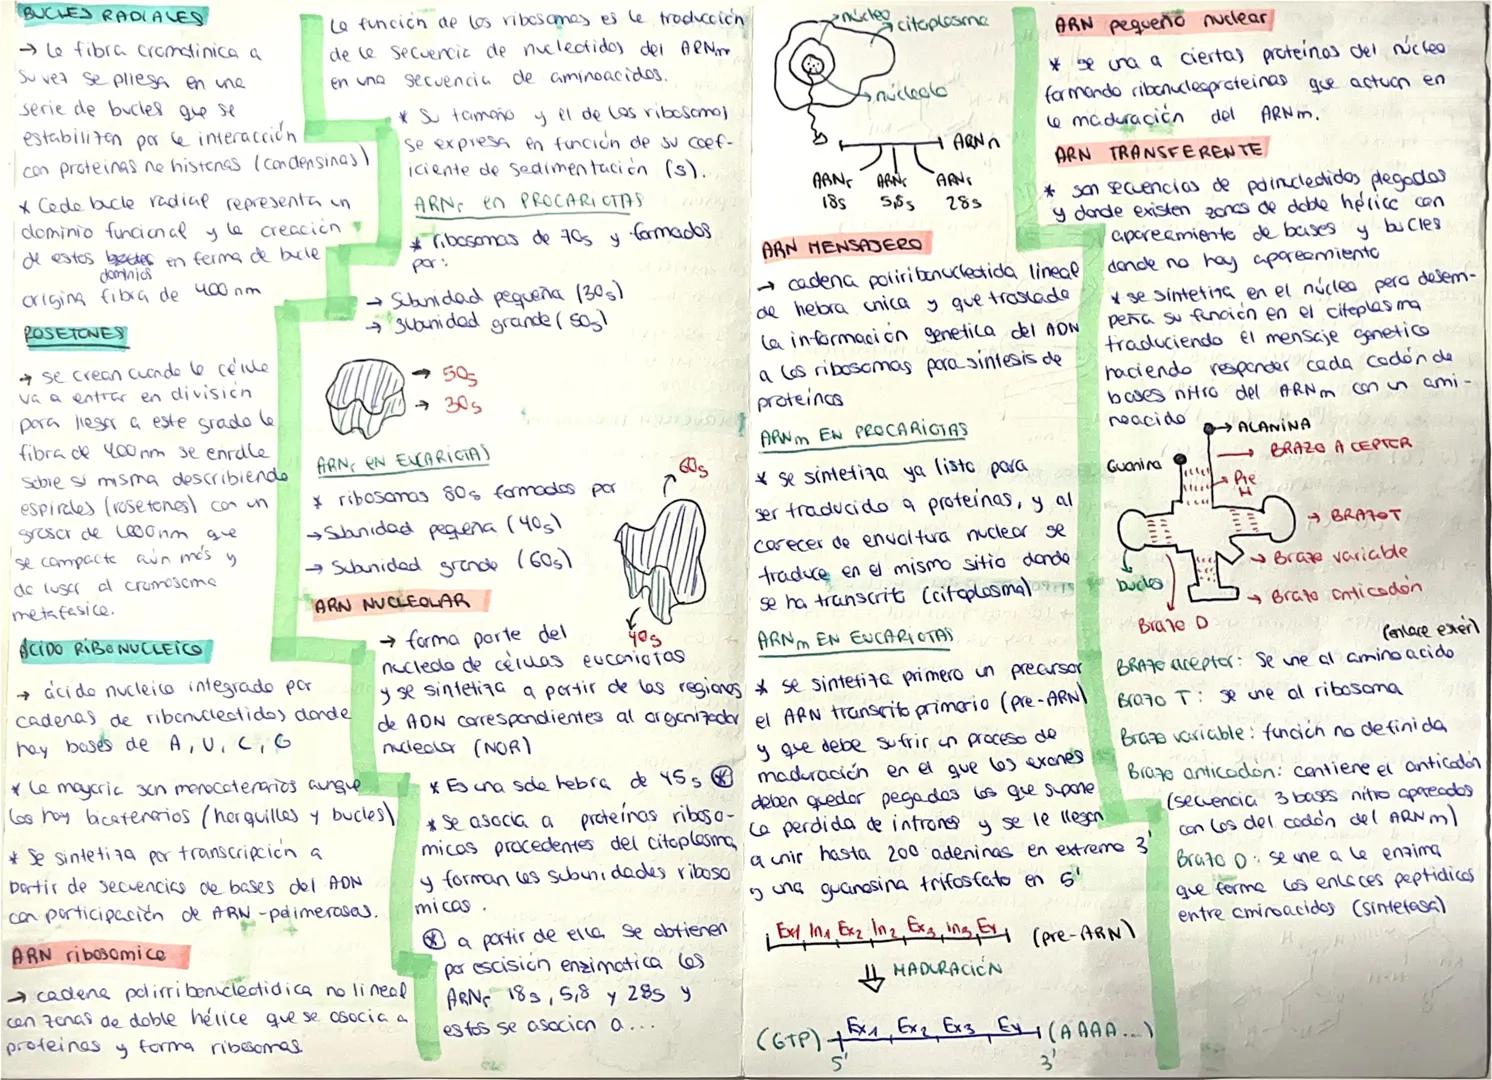 BUCLES RADIALES
→ La fibra cromatinica a
su vez se pliega en una
serie de bucles que se
estabilizan por la interacción
con proteinas no histonas (condensinas)
* Cada bucle radial representa un
dominio funcional y la creación
de estos dominios en forma de bucle
origina fibra de 400 nm
ROSETONES
→ se crean cuando la célula
va a entrar en división
para llegar a este grado la
fibra de 400nm se enrolla
sobre sí misma describiendo
espirales (rosetones) con un
grosor de 1000nm que
se compacta aún más y
da lugar al cromosoma
metafásico.
ÁCIDO RIBONUCLEICO
→ ácido nucleico integrado por
cadenas de ribonucleotidos donde
hay bases de A, U, C, G
* La mayoria son monocatenarios aunque
los hay bicatenarios (horquillas y bucles)
* Se sintetiza por transcripción a
partir de secuencias de bases del ADN
con participación de ARN-polimerasas.
ARN ribosomico
→ cadena polirribonucleotidica no lineal
con zonas de doble hélice que se asocia a
proteinas y forma ribosomas
La función de los ribosomas es la traducción
de la secuencia de nucleotidos del ARNm
en una secuencia de aminoacidos.
* Su tamaño y el de los ribosomas
se expresa en función de su coef-
iciente de sedimentación (s).
ARNr en PROCARIOTAS
* ribosomas de 70s y formados
por:
→ Subunidad pequeña (30s)
→ Subunidad grande (50s)
→ 50s
→ 30s
ARNr EN EUCARIOTAS
* ribosomas 80s formados por
→ Subunidad pequeña (40s)
→ Subunidad grande (60s)
60s
40s
ARN NUCLEOLAR
→ forma parte del
nucleolo de células eucariotas
y se sintetiza a partir de las regiones
de ADN correspondientes al organizador
nucleolar (NOR)
* Es una sola hebra de 45s (*)
* Se asocia a proteínas riboso-
micas procedentes del citoplasma
y forman las subunidades riboso
micas.
(*) a partir de ella se obtienen
por escisión enzimatica los
ARNr 18s, 5,8 y 28s y
estos se asocian a...
núcleo
citoplasma
núcleolo
ARNn
ARNr ARNr ARNr
18s 5,8s 28s
ARN MENSAJERO
→ cadena poliribonucleotida lineal
de hebra unica y que traslada
la información genetica del ADN
a los ribosomas para síntesis de
proteínas
ARNm EN PROCARIOTAS
* se sintetiza ya listo para
ser traducido a proteínas, y al
carecer de envoltura nuclear se
traduce en el mismo sitio donde
se ha transcrito (citoplasma)
ARNm EN EUCARIOTAS
* se sintetiza primero un precursor
el ARN transcrito primario (pre-ARN)
y que debe sufrir un proceso de
maduración en el que los exones
deben quedar pegados los que supone
la perdida de intrones y se le llegan
a unir hasta 200 adeninas en extremo 3'
y una guanosina trifosfato en 5'
Ex1 In1 Ex2 In2 Ex3 In3 Ex4 (pre-ARN)
⇓ MADURACIÓN
(GTP) Ex1 Ex2 Ex3 Ex4 (AAAA...)
5' 3'
ARN pequeño nuclear
* se una a ciertas proteínas del núcleo
formando ribonucleoproteinas que actuan en
la maduración del ARNm.
ARN TRANSFERENTE
* son secuencias de polinucleotidos plegados
y donde existen zonas de doble hélice con
apareamiento de bases y bucles
donde no hay apareamiento
* se sintetiza en el núcleo pero desem-
peña su función en el citoplasma
traduciendo el mensaje genetico
haciendo responder cada codón de
bases nitro del ARNm con un ami-
noacido
→ ALANINA
Guanina
→ BRAZO ACEPTOR
→ BRAZO T
→ Brazo variable
bucles
→ Brazo anticodón
Brazo D
(enlace estér)
BRAZO aceptor: Se une al aminoacido
Brazo T: se une al ribosoma
Brazo variable: función no definida
Brazo anticodon: contiene el anticodón
(secuencia 3 bases nitro apareados
con los del codón del ARNm)
Brazo D: se une a la enzima
que forma los enlaces peptidicos
entre aminoacidos (sintetasa)